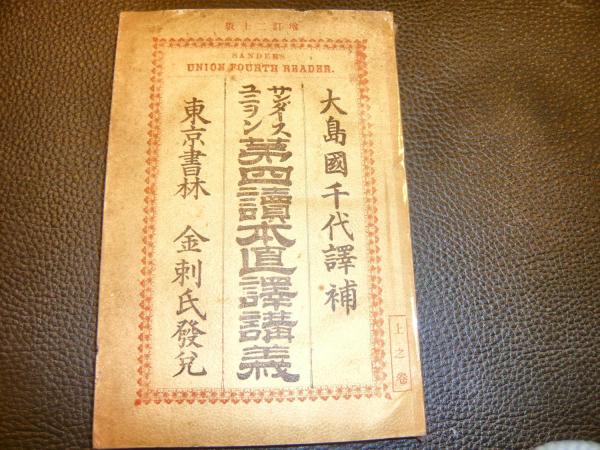 増訂二十版
SANDERS
UNION FOURTH READER.
大島國千代譯補
サンダースユニヲン
第四讀本直譯講義
東京書林 金刺氏發兌
上之卷